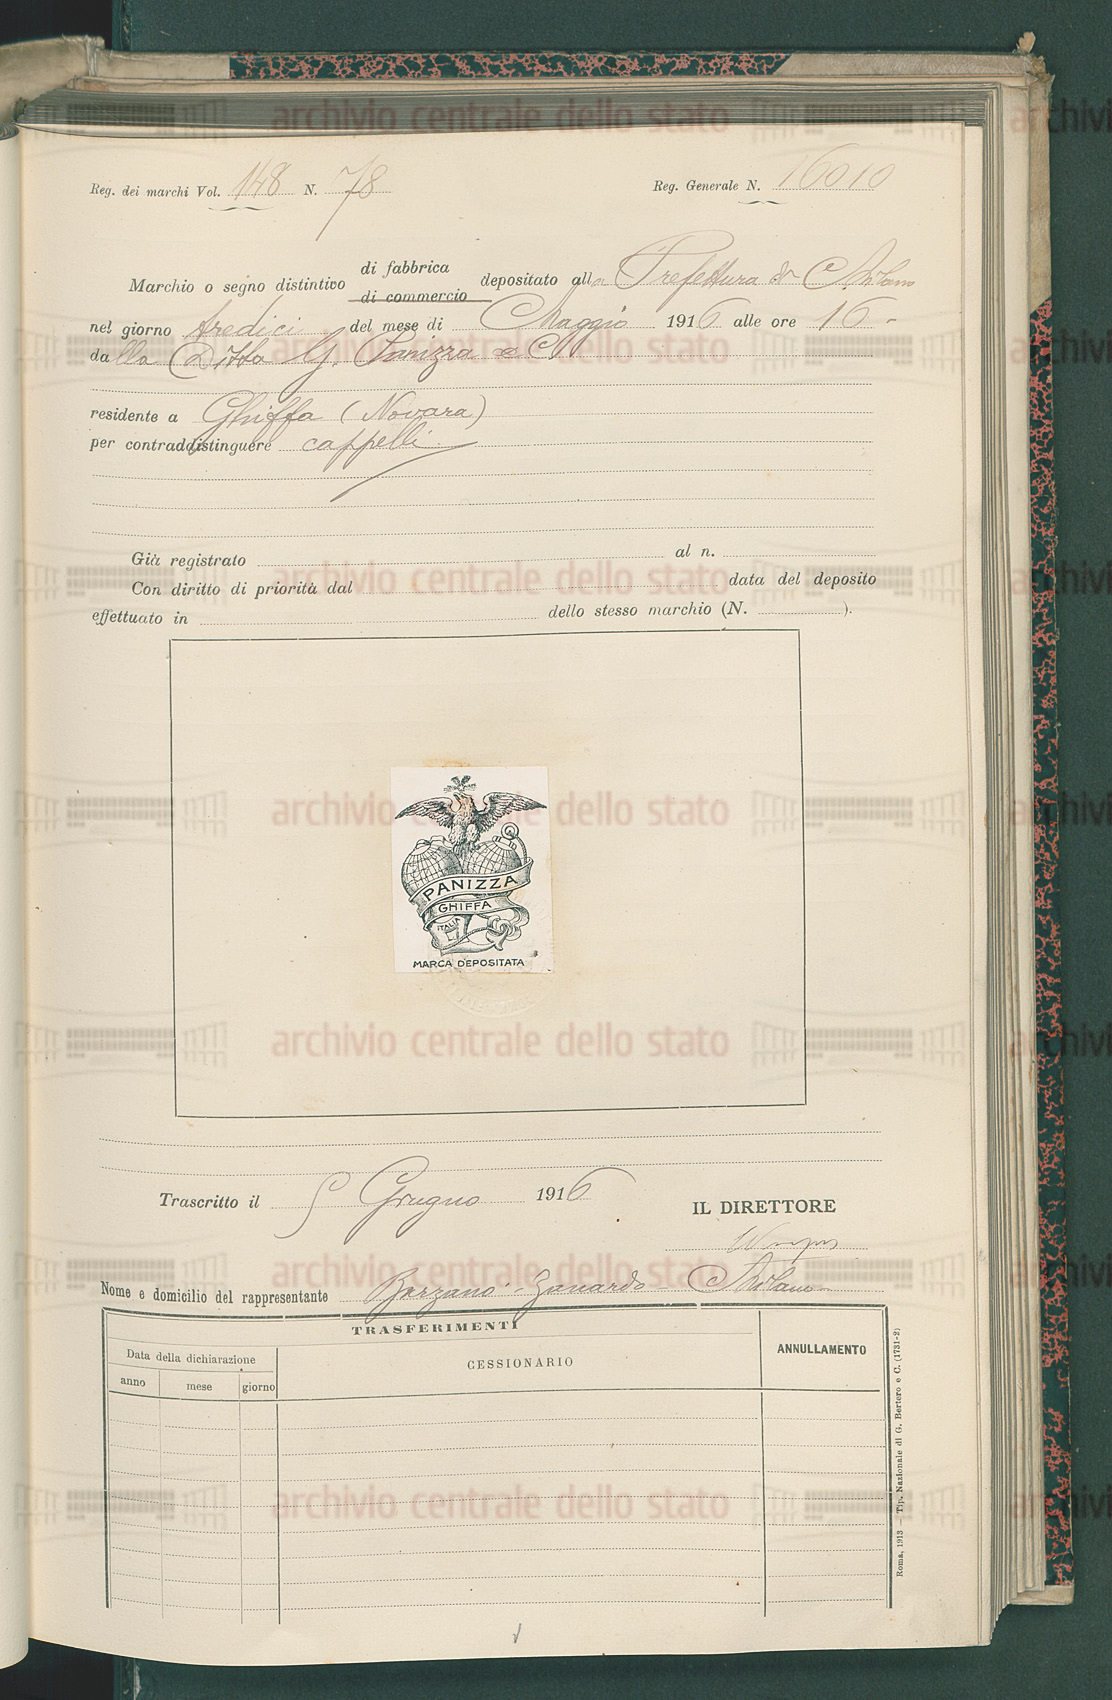 Reg. dei marchi Vol. 148 N. 78
Reg. Generale N. 16010
Marchio o segno distintivo di fabbrica di commercio depositato alla Prefettura di Milano
nel giorno tredici del mese di Maggio 1916 alle ore 16 -
dalla Ditta G. Panizza e C.
residente a Ghiffa (Novara)
per contraddistinguere cappelli
Già registrato al n.
Con diritto di priorità dal data del deposito
effettuato in dello stesso marchio (N. ).
PANIZZA
GHIFFA
ITALIA
MARCA DEPOSITATA
Trascritto il Giugno 1916
IL DIRETTORE
Nome e domicilio del rappresentante Barzanò - Zanardo - Milano
TRASFERIMENTI
Data della dichiarazione
CESSIONARIO
ANNULLAMENTO
anno mese giorno
Roma, 1913 — Tip. Nazionale di G. Bertero e C. (1731-2)
archivio centrale dello stato
archivio centrale dello stato
archivio centrale dello stato
archivio centrale dello stato
archivio centrale dello stato
archivio centrale dello stato
archivio centrale dello stato